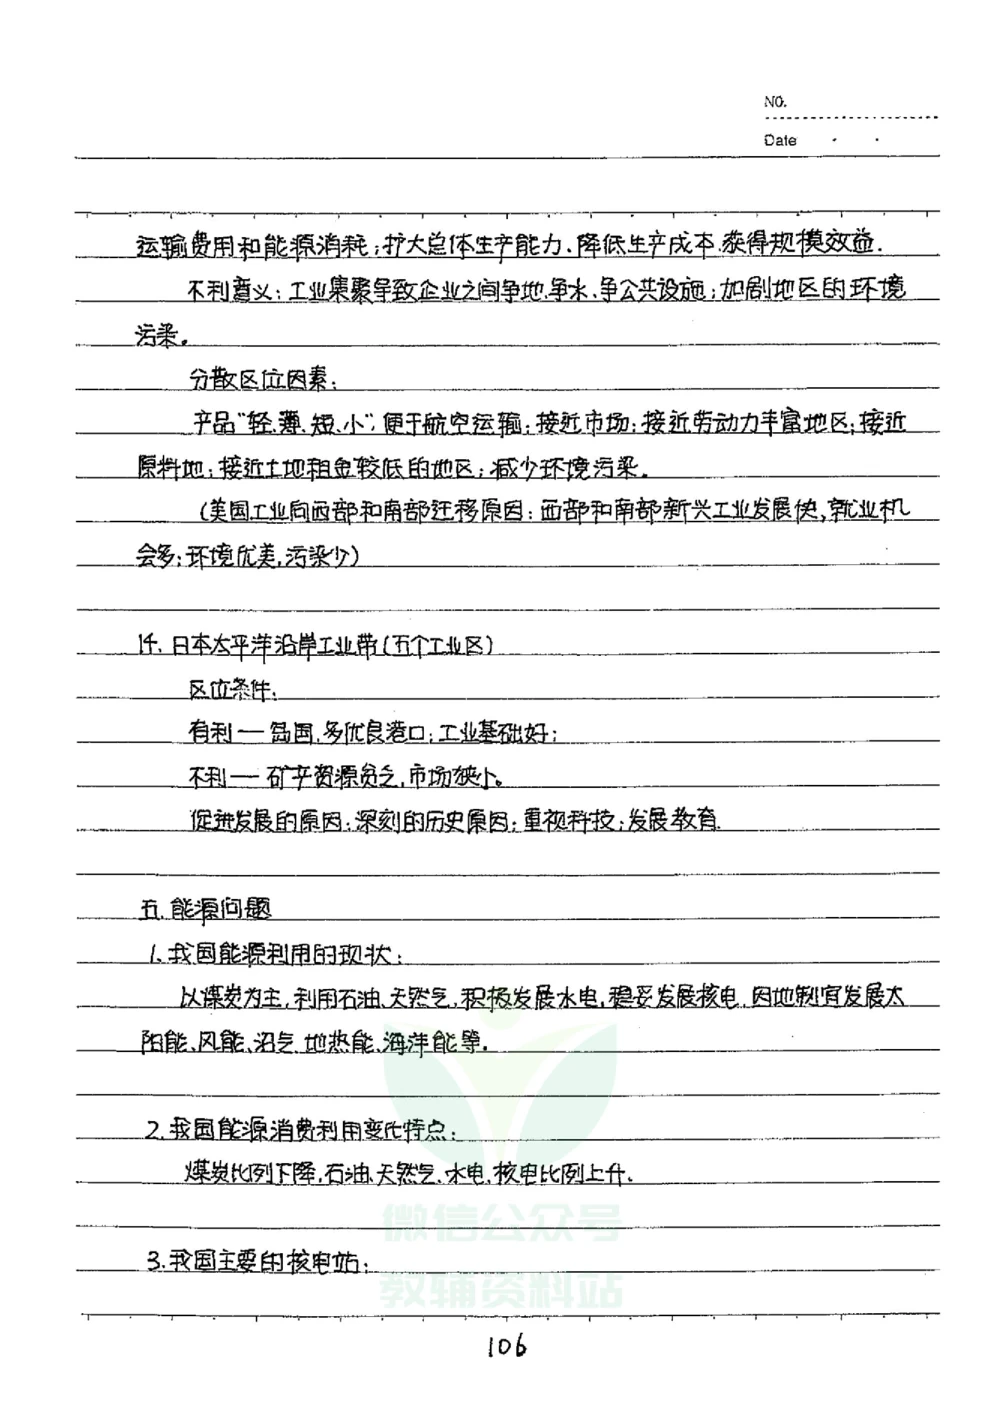 NO.
Date
运输费用和能源消耗;扩大总体生产能力、降低生产成本、获得规模效益.
不利意义:工业集聚导致企业之间争地、争水、争公共设施;加剧地区的环境
污染。
分散区位因素:
产品"轻、薄、短、小",便于航空运输;接近市场;接近劳动力丰富地区;接近
原料地;接近土地租金较低的地区;减少环境污染.
(美国工业向西部和南部迁移原因:西部和南部新兴工业发展快,就业机
会多;环境优美,污染少)
14.日本太平洋沿岸工业带(五个工业区)
区位条件:
有利——岛国,多优良港口;工业基础好;
不利——矿产资源贫乏,市场狭小。
促进发展的原因:深刻的历史原因;重视科技;发展教育.
五.能源问题
1.我国能源利用的现状:
以煤炭为主,利用石油、天然气,积极发展水电,稳妥发展核电,因地制宜发展太
阳能、风能、沼气、地热能、海洋能等.
2.我国能源消费利用变化特点:
煤炭比例下降,石油、天然气、水电、核电比例上升.
微信公众号
3.我国主要的核电站:
教辅资料站
106